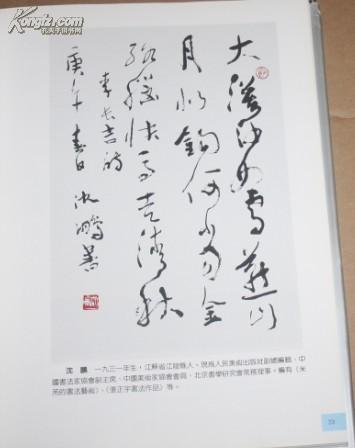 Kongfz.com
孔夫子旧书网
大漠沙如雪燕山
月似鉤何當金
絡腦快走踏清秋
李長吉詩
庚午春日沈鵬書
沈 鵬 一九三一年生，江蘇省江陰縣人。現爲人民美術出版社副總編輯、中
國書法家協會副主席、中國美術家協會會員、北京書學研究會常務理事。編有《米
芾的書法藝術》、《張正宇書法作品》等。